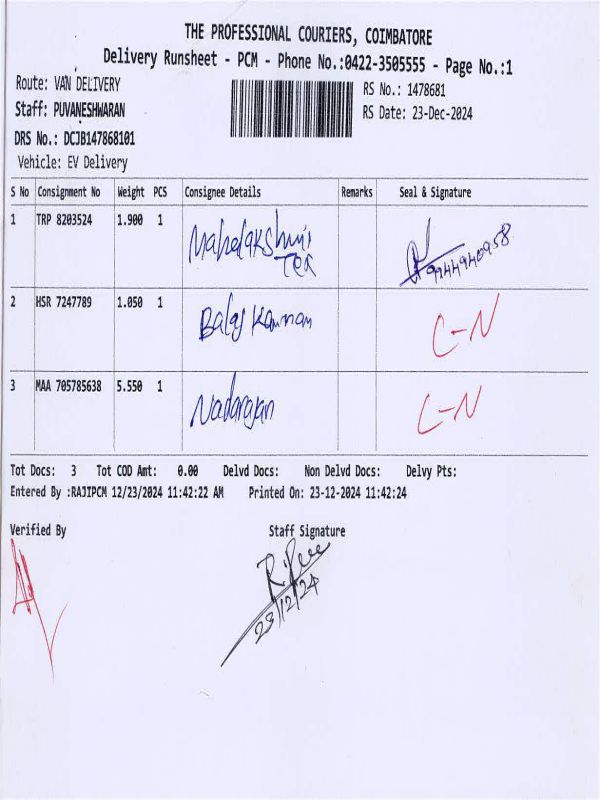 THE PROFESSIONAL COURIERS, COIMBATORE
Delivery Runsheet - PCM - Phone No.:0422-3505555 - Page No.:1
Route: VAN DELIVERY
RS No.: 1478681
Staff: PUVANESHWARAN
RS Date: 23-Dec-2024
DRS No.: DCJB147868101
Vehicle: EV Delivery
S No Consignment No Weight PCS Consignee Details Remarks Seal & Signature
1 TRP 8203524 1.900 1 Mahalakshmi Tex 9944940958
2 HSR 7247789 1.050 1 Balaj C-N
3 MAA 705785638 5.550 1 Nadarajan C-N
Tot Docs: 3 Tot COD Amt: 0.00 Delvd Docs: Non Delvd Docs: Delvy Pts:
Entered By :RAJIPCM 12/23/2024 11:42:22 AM Printed On: 23-12-2024 11:42:24
Verified By Staff Signature
23/12/24